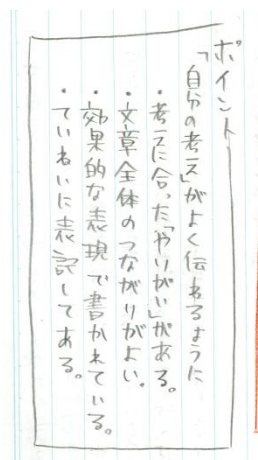 ポイント
「自分の考え」がよく伝わるように
・考えに合った「やりがい」がある。
・文章全体のつながりがよい。
・効果的な表現で書かれている。
・ていねいに表記してある。